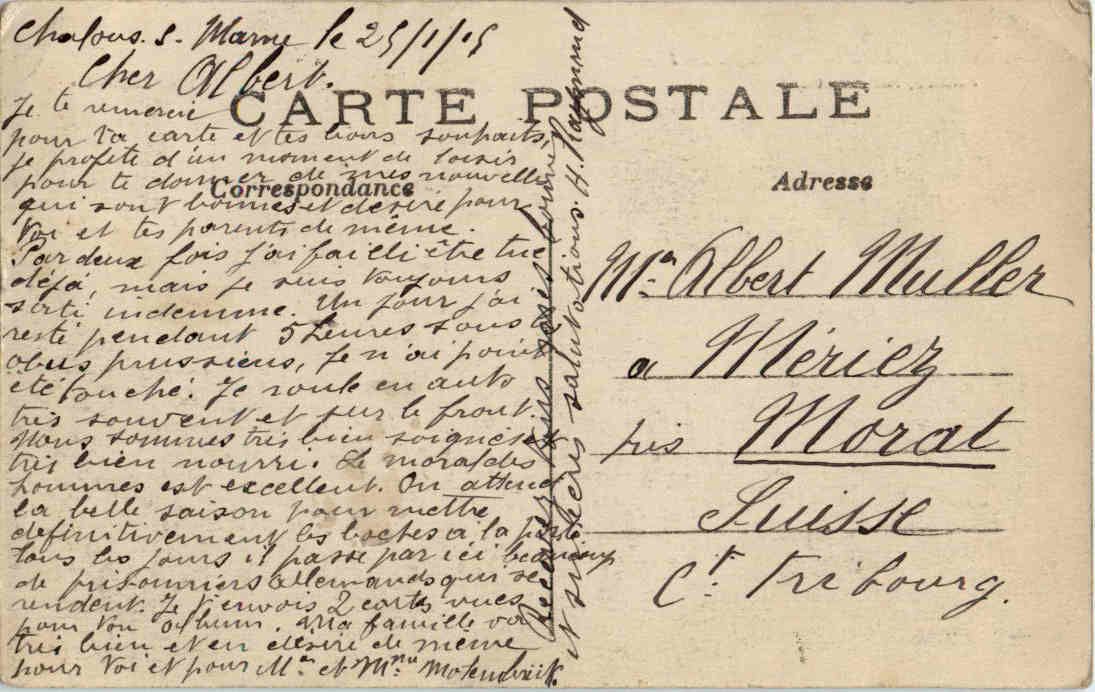 Chalons. s. Marne le 25/1/15
Cher Albert.
CARTE POSTALE
Correspondance
Adresse
Je te remercie
pour ta carte et tes bons souhaits,
je profite d'un moment de loisir
pour te donner de mes nouvelles
qui sont bonnes et désire pour
toi et tes parents de même.
Par deux fois j'ai failli être tué
déjà, mais je suis toujours
sorti indemne. Un jour j'ai
resté pendant 5 heures sous
obus prussiens, je n'ai point
été touché. Je roule en auto
très souvent et sur le front.
Nous sommes très bien soignés et
très bien nourri. Le moral des
hommes est excellent. On attend
la belle saison pour mettre
définitivement les boches à la porte
tous les jours il passe par ici beaucoup
de prisonniers allemands qui se
rendent. Je t'envois 2 cartes vues
pour ton album. Ma famille va
très bien et en désire de même
pour toi et pour Mr et Mme
Recevez tous mes
et sincères salutations. H. Raymond
Mr. Albert Muller
a Mériez
près Morat
Suisse
Ct. Fribourg.